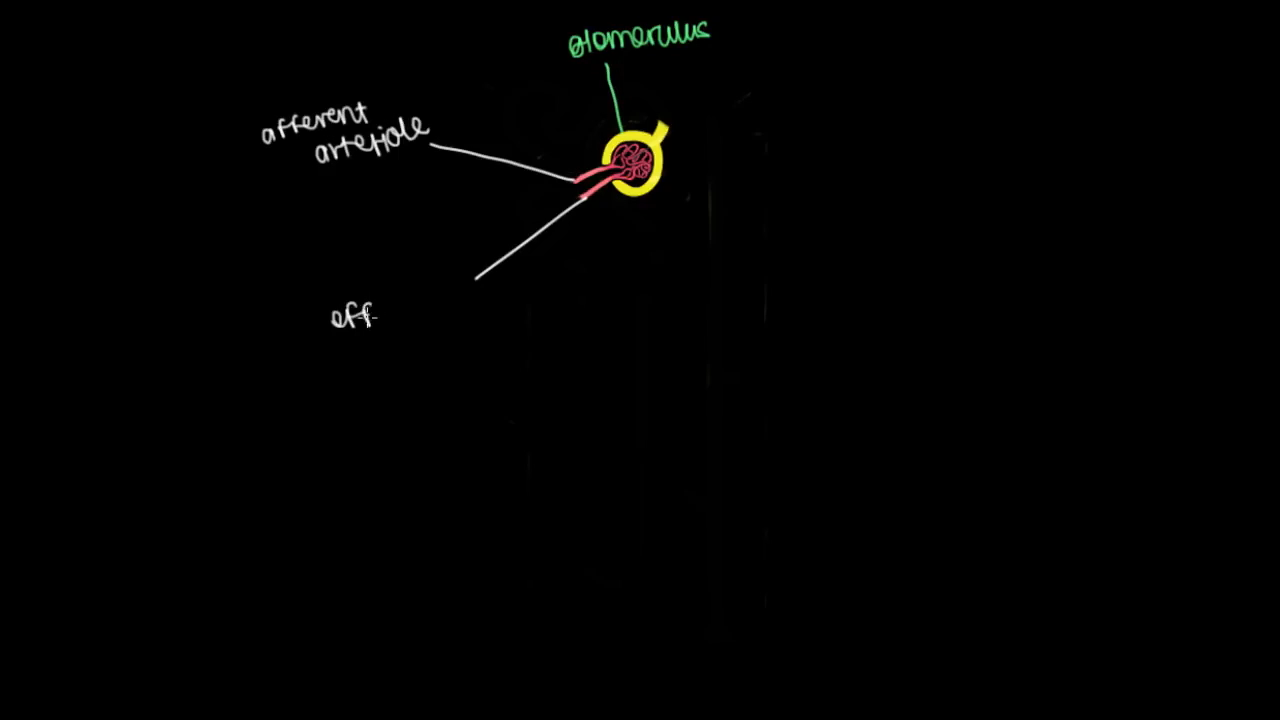 glomerulus
afferent
arteriole
eff